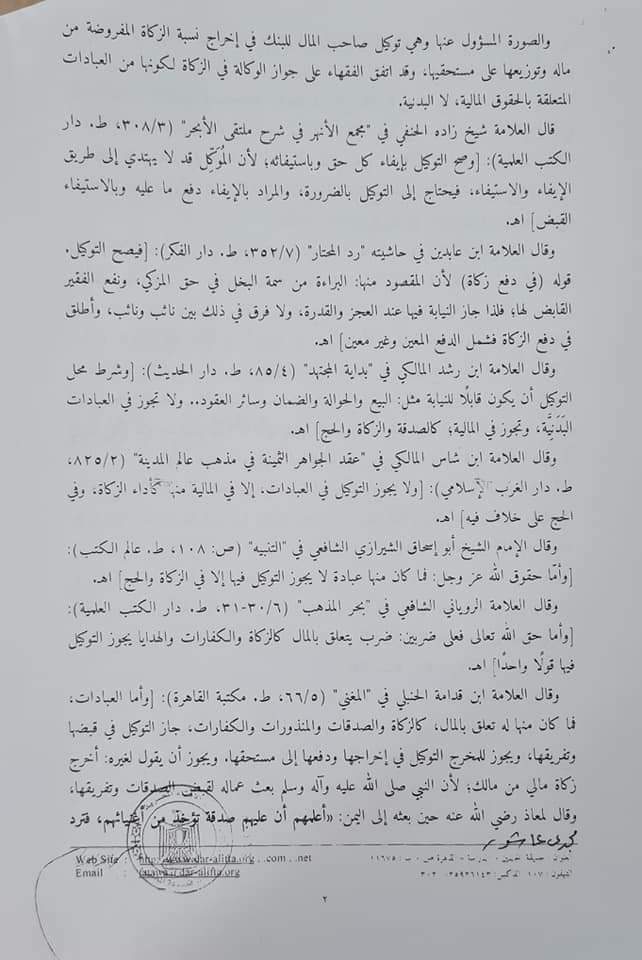 والصورة المسؤول عنها وهي توكيل صاحب المال للبنك في إخراج نسبة الزكاة المفروضة من
ماله وتوزيعها على مستحقيها، وقد اتفق الفقهاء على جواز الوكالة في الزكاة لكونها من العبادات
المتعلقة بالحقوق المالية، لا البدنية.
قال العلامة شيخ زاده الحنفي في "مجمع الأنهر في شرح ملتقى الأبحر" (٣٠٨/٣، ط. دار
الكتب العلمية): [وصح التوكيل بإيفاء كل حق وباستيفائه؛ لأن المُوَكِّل قد لا يهتدي إلى طريق
الإيفاء والاستيفاء، فيحتاج إلى التوكيل بالضرورة، والمراد بالإيفاء دفع ما عليه وبالاستيفاء
القبض] اهـ.
وقال العلامة ابن عابدين في حاشيته "رد المحتار" (٣٥٢/٧، ط. دار الفكر): [فيصح التوكيل.
قوله (في دفع زكاة) لأن المقصود منها: البراءة من سمة البخل في حق المزكي، ونفع الفقير
القابض لها؛ فلذا جاز النيابة فيها عند العجز والقدرة، ولا فرق في ذلك بين نائب ونائب، وأطلق
في دفع الزكاة فشمل الدفع المعين وغير معين] اهـ.
وقال العلامة ابن رشد المالكي في "بداية المجتهد" (٨٥/٤، ط. دار الحديث): [وشرط محل
التوكيل أن يكون قابلًا للنيابة مثل: البيع والحوالة والضمان وسائر العقود.. ولا تجوز في العبادات
البَدَنِيَّة، وتجوز في المالية؛ كالصدقة والزكاة والحج] اهـ.
وقال العلامة ابن شاس المالكي في "عقد الجواهر الثمينة في مذهب عالم المدينة" (٨٢٥/٢،
ط. دار الغرب الإسلامي): [ولا يجوز التوكيل في العبادات، إلا في المالية منها كأداء الزكاة، وفي
الحج على خلاف فيه] اهـ.
وقال الإمام الشيخ أبو إسحاق الشيرازي الشافعي في "التنبيه" (ص: ١٠٨، ط. عالم الكتب):
[وأمّا حقوق الله عز وجل: فما كان منها عبادة لا يجوز التوكيل فيها إلا في الزكاة والحج] اهـ.
وقال العلامة الروياني الشافعي في "بحر المذهب" (٣٠/٦-٣١، ط. دار الكتب العلمية):
[وأما حق الله تعالى فعلى ضربين: ضرب يتعلق بالمال كالزكاة والكفارات والهدايا يجوز التوكيل
فيها قولًا واحدًا] اهـ.
وقال العلامة ابن قدامة الحنبلي في "المغني" (٦٦/٥، ط. مكتبة القاهرة): [وأما العبادات،
فما كان منها له تعلق بالمال، كالزكاة والصدقات والمنذورات والكفارات، جاز التوكيل في قبضها
وتفريقها، ويجوز للمخرج التوكيل في إخراجها ودفعها إلى مستحقها. ويجوز أن يقول لغيره: أخرج
زكاة مالي من مالك؛ لأن النبي صلى الله عليه وآله وسلم بعث عماله لقبض الصدقات وتفريقها،
وقال لمعاذ رضي الله عنه حين بعثه إلى اليمن: «أعلمهم أن عليهم صدقة تؤخذ من أغنيائهم، فترد
مجدى عاشور
Web Site : http://www.dar-alifta.org ..com ..net
Email : fatawa@dar-alifta.org
٢